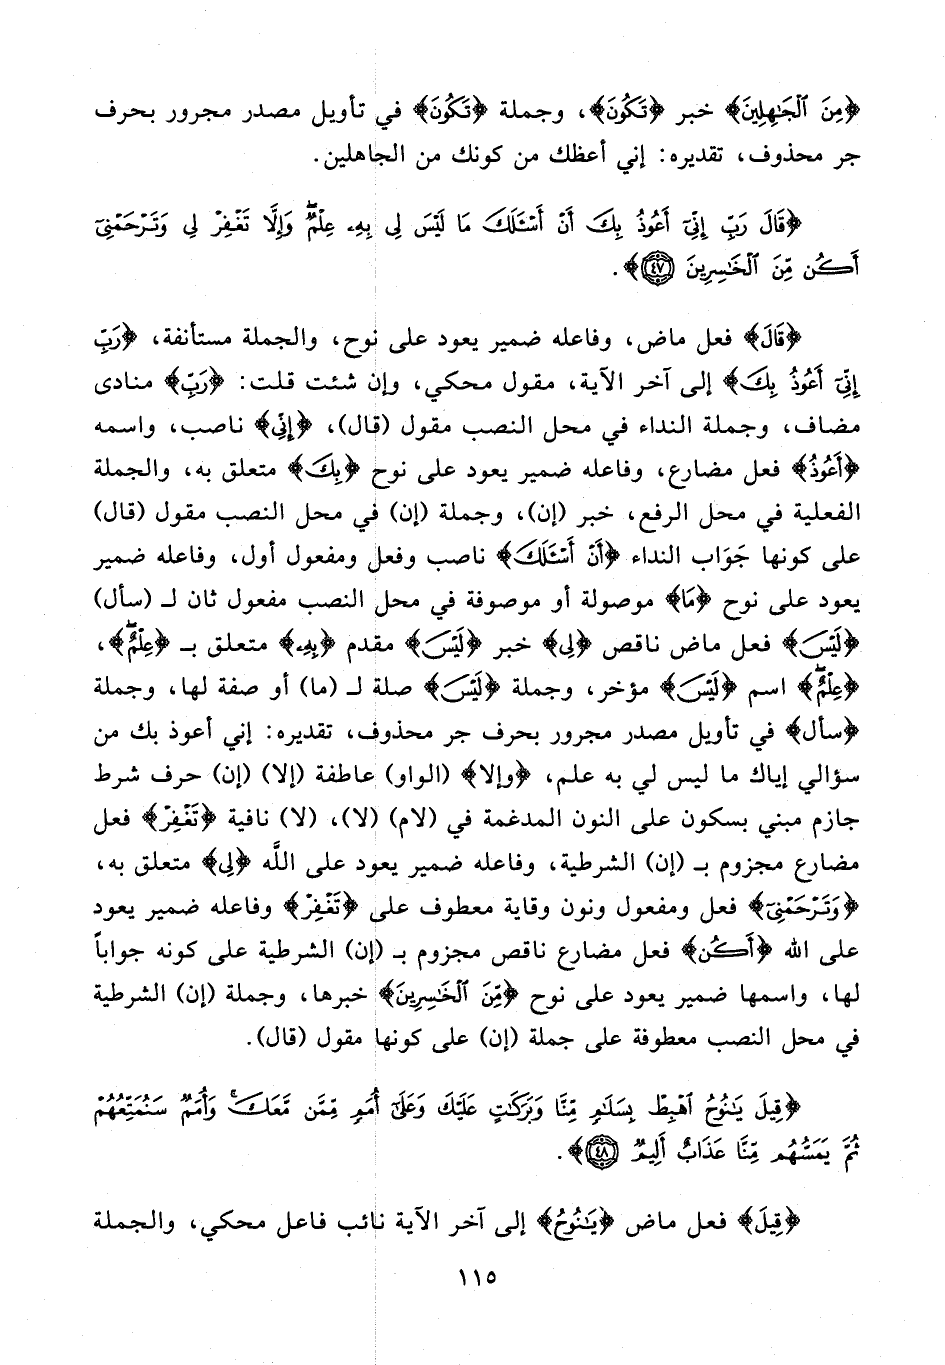 ﴿مِنَ ٱلْجَٰهِلِينَ﴾ خبر ﴿تَكُونَ﴾، وجملة ﴿تَكُونَ﴾ في تأويل مصدر مجرور بحرف
جر محذوف، تقديره: إني أعظك من كونك من الجاهلين.
﴿قَالَ رَبِّ إِنِّىٓ أَعُوذُ بِكَ أَنْ أَسْـَٔلَكَ مَا لَيْسَ لِى بِهِۦ عِلْمٌۖ وَإِلَّا تَغْفِرْ لِى وَتَرْحَمْنِىٓ
أَكُن مِّنَ ٱلْخَٰسِرِينَ ٤٧﴾.
﴿قَالَ﴾ فعل ماض، وفاعله ضمير يعود على نوح، والجملة مستأنفة، ﴿رَبِّ
إِنِّىٓ أَعُوذُ بِكَ﴾ إلى آخر الآية، مقول محكي، وإن شئت قلت: ﴿رَبِّ﴾ منادى
مضاف، وجملة النداء في محل النصب مقول (قال)، ﴿إِنِّى﴾ ناصب، واسمه
﴿أَعُوذُ﴾ فعل مضارع، وفاعله ضمير يعود على نوح ﴿بِكَ﴾ متعلق به، والجملة
الفعلية في محل الرفع، خبر (إن)، وجملة (إن) في محل النصب مقول (قال)
على كونها جَوَاب النداء ﴿أَنْ أَسْـَٔلَكَ﴾ ناصب وفعل ومفعول أول، وفاعله ضمير
يعود على نوح ﴿مَا﴾ موصولة أو موصوفة في محل النصب مفعول ثان لـ (سأل)
﴿لَيْسَ﴾ فعل ماض ناقص ﴿لِى﴾ خبر ﴿لَيْسَ﴾ مقدم ﴿بِهِۦ﴾ متعلق بـ ﴿عِلْمٌۖ﴾،
﴿عِلْمٌۖ﴾ اسم ﴿لَيْسَ﴾ مؤخر، وجملة ﴿لَيْسَ﴾ صلة لـ (ما) أو صفة لها، وجملة
﴿سأل﴾ في تأويل مصدر مجرور بحرف جر محذوف، تقديره: إني أعوذ بك من
سؤالي إياك ما ليس لي به علم، ﴿وإلا﴾ (الواو) عاطفة (إلا) (إن) حرف شرط
جازم مبني بسكون على النون المدغمة في (لام) (لا)، (لا) نافية ﴿تَغْفِرْ﴾ فعل
مضارع مجزوم بـ (إن) الشرطية، وفاعله ضمير يعود على اللَّه ﴿لِى﴾ متعلق به،
﴿وَتَرْحَمْنِىٓ﴾ فعل ومفعول ونون وقاية معطوف على ﴿تَغْفِرْ﴾ وفاعله ضمير يعود
على الله ﴿أَكُن﴾ فعل مضارع ناقص مجزوم بـ (إن) الشرطية على كونه جواباً
لها، واسمها ضمير يعود على نوح ﴿مِّنَ ٱلْخَٰسِرِينَ﴾ خبرها، وجملة (إن) الشرطية
في محل النصب معطوفة على جملة (إن) على كونها مقول (قال).
﴿قِيلَ يَٰنُوحُ ٱهْبِطْ بِسَلَٰمٍ مِّنَّا وَبَرَكَٰتٍ عَلَيْكَ وَعَلَىٰٓ أُمَمٍ مِّمَّن مَّعَكَۚ وَأُمَمٌ سَنُمَتِّعُهُمْ
ثُمَّ يَمَسُّهُم مِّنَّا عَذَابٌ أَلِيمٌ ٤٨﴾.
﴿قِيلَ﴾ فعل ماض ﴿يَٰنُوحُ﴾ إلى آخر الآية نائب فاعل محكي، والجملة
١١٥